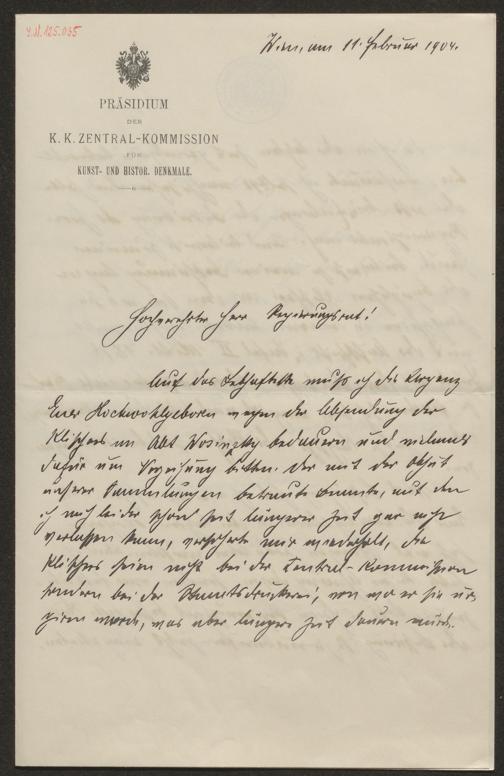 J.N. 125.035
Wien, am 11. Februar 1904.
PRÄSIDIUM
DER
K. K. ZENTRAL-KOMMISSION
FÜR
KUNST- UND HISTOR. DENKMALE.
Hochverehrter Herr Regierungsrat!
Auf das Lebhafteste muß ich die
Euer Hochwohlgeboren wegen der Absendung der
Klischees an Abt Wosinsky bedauern und vielmals
dafür um Verzeihung bitten. Der mit der Obhut
unserer Sammlungen betraute Beamte, auf den
ich mich leider schon seit längerer Zeit gar nicht
verlassen kann, versicherte mir wiederholt, die
Klischees seien nicht bei der Zentral-Kommission
sondern bei der Staatsdruckerei, von wo er sie ur-
giren werde, was aber längere Zeit dauern würde.